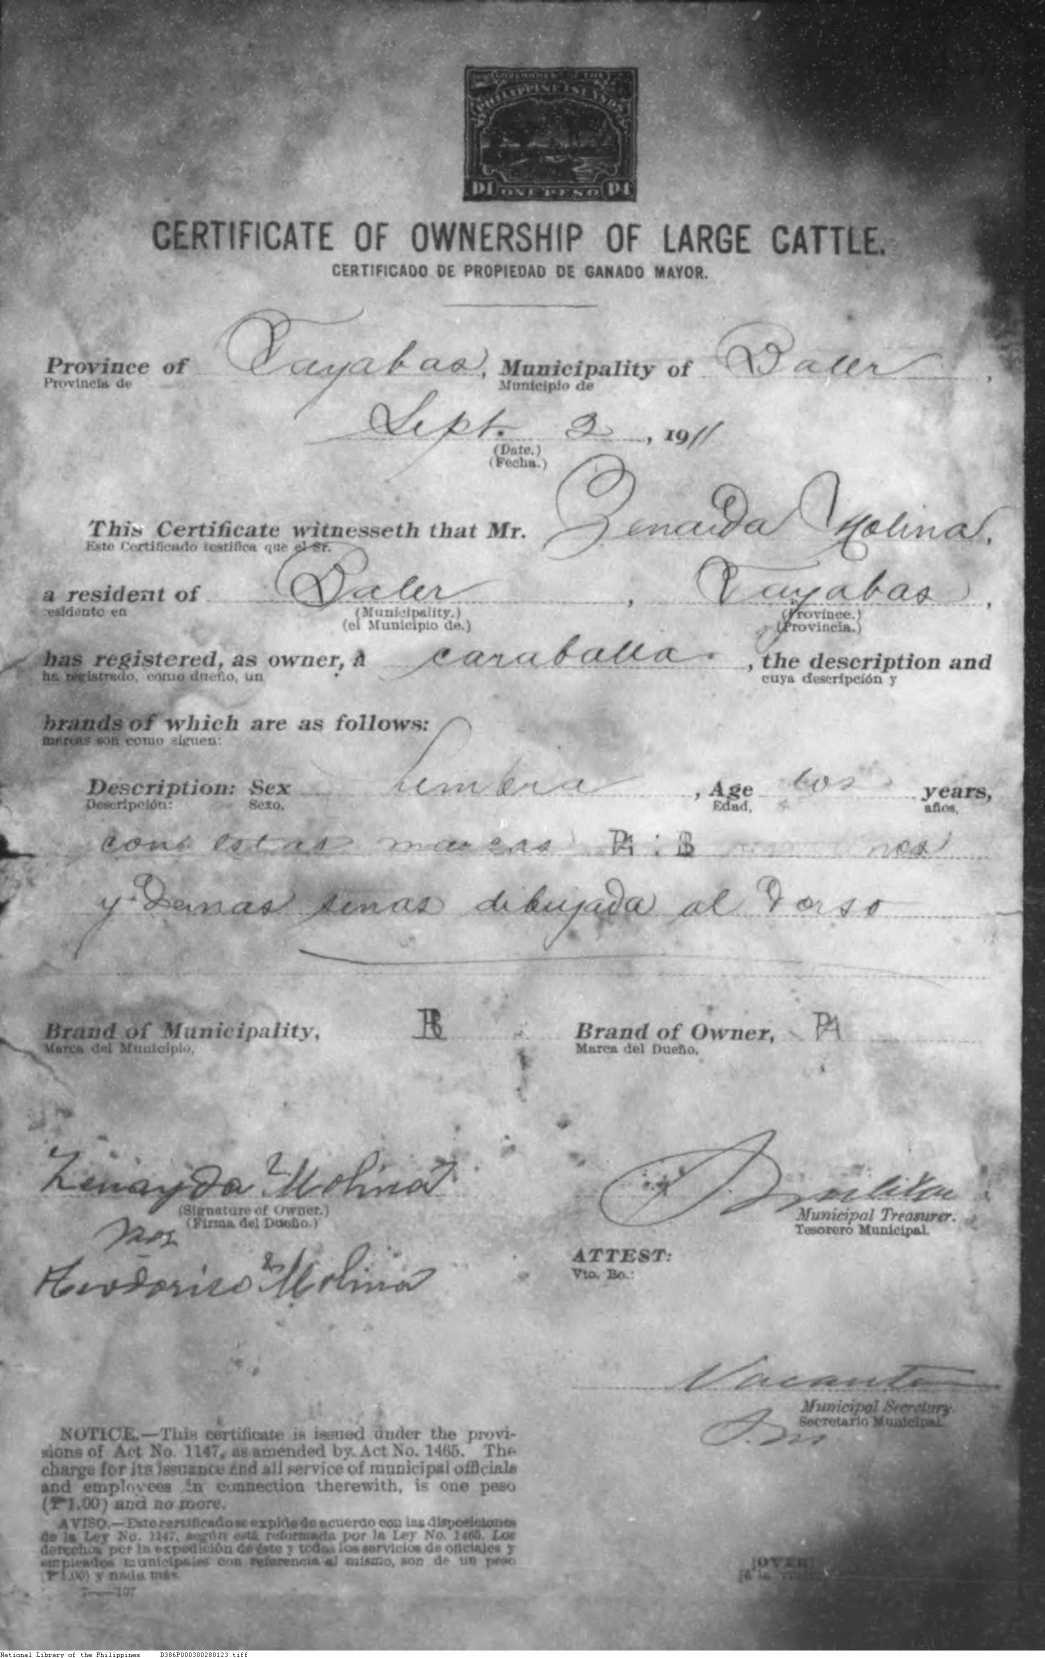 GOVERNMENT OF THE
PHILIPPINE ISLANDS
P1 ONE PESO P1
CERTIFICATE OF OWNERSHIP OF LARGE CATTLE.
CERTIFICADO DE PROPIEDAD DE GANADO MAYOR.
Province of Tayabas, Municipality of Baler,
Provincia de Municipio de
Sept. 2, 1911
(Date.)
(Fecha.)
This Certificate witnesseth that Mr. Zenaida Molina,
Este Certificado testifica que el Sr.
a resident of Baler, Tayabas,
esidente en (Municipality.) (Province.)
(el Municipio de.) (Provincia.)
has registered, as owner, a caraballa, the description and
ha registrado, como dueño, un cuya descripción y
brands of which are as follows:
marcas son como siguen:
Description: Sex hembra, Age dos years,
Descripción: Sexo. Edad, años,
con estas marcas PA : B
y demas senas dibujada al dorso
Brand of Municipality, B Brand of Owner, PA
Marca del Municipio. Marca del Dueño.
Zenayda Molina
(Signature of Owner.) Municipal Treasurer.
(Firma del Dueño.) Tesorero Municipal.
Por
ATTEST:
Vto. Bo.:
Teodorico Molina
Vacante
Municipal Secretary.
Secretario Municipal.
NOTICE.—This certificate is issued under the provi-
sions of Act No. 1147, as amended by Act No. 1465. The
charge for its issuance and all service of municipal officials
and employees in connection therewith, is one peso
(₱1.00) and no more.
AVISO.—Este certificado se expide de acuerdo con las disposiciones
de la Ley No. 1147, según está reformada por la Ley No. 1465. Los
derechos por la expedición de éste y todos los servicios de oficiales y
empleados municipales con referencia al mismo, son de un peso
(₱1.00) y nada más.
7——107
[OVER]
National Library of the Philippines D386P000300280123.tiff